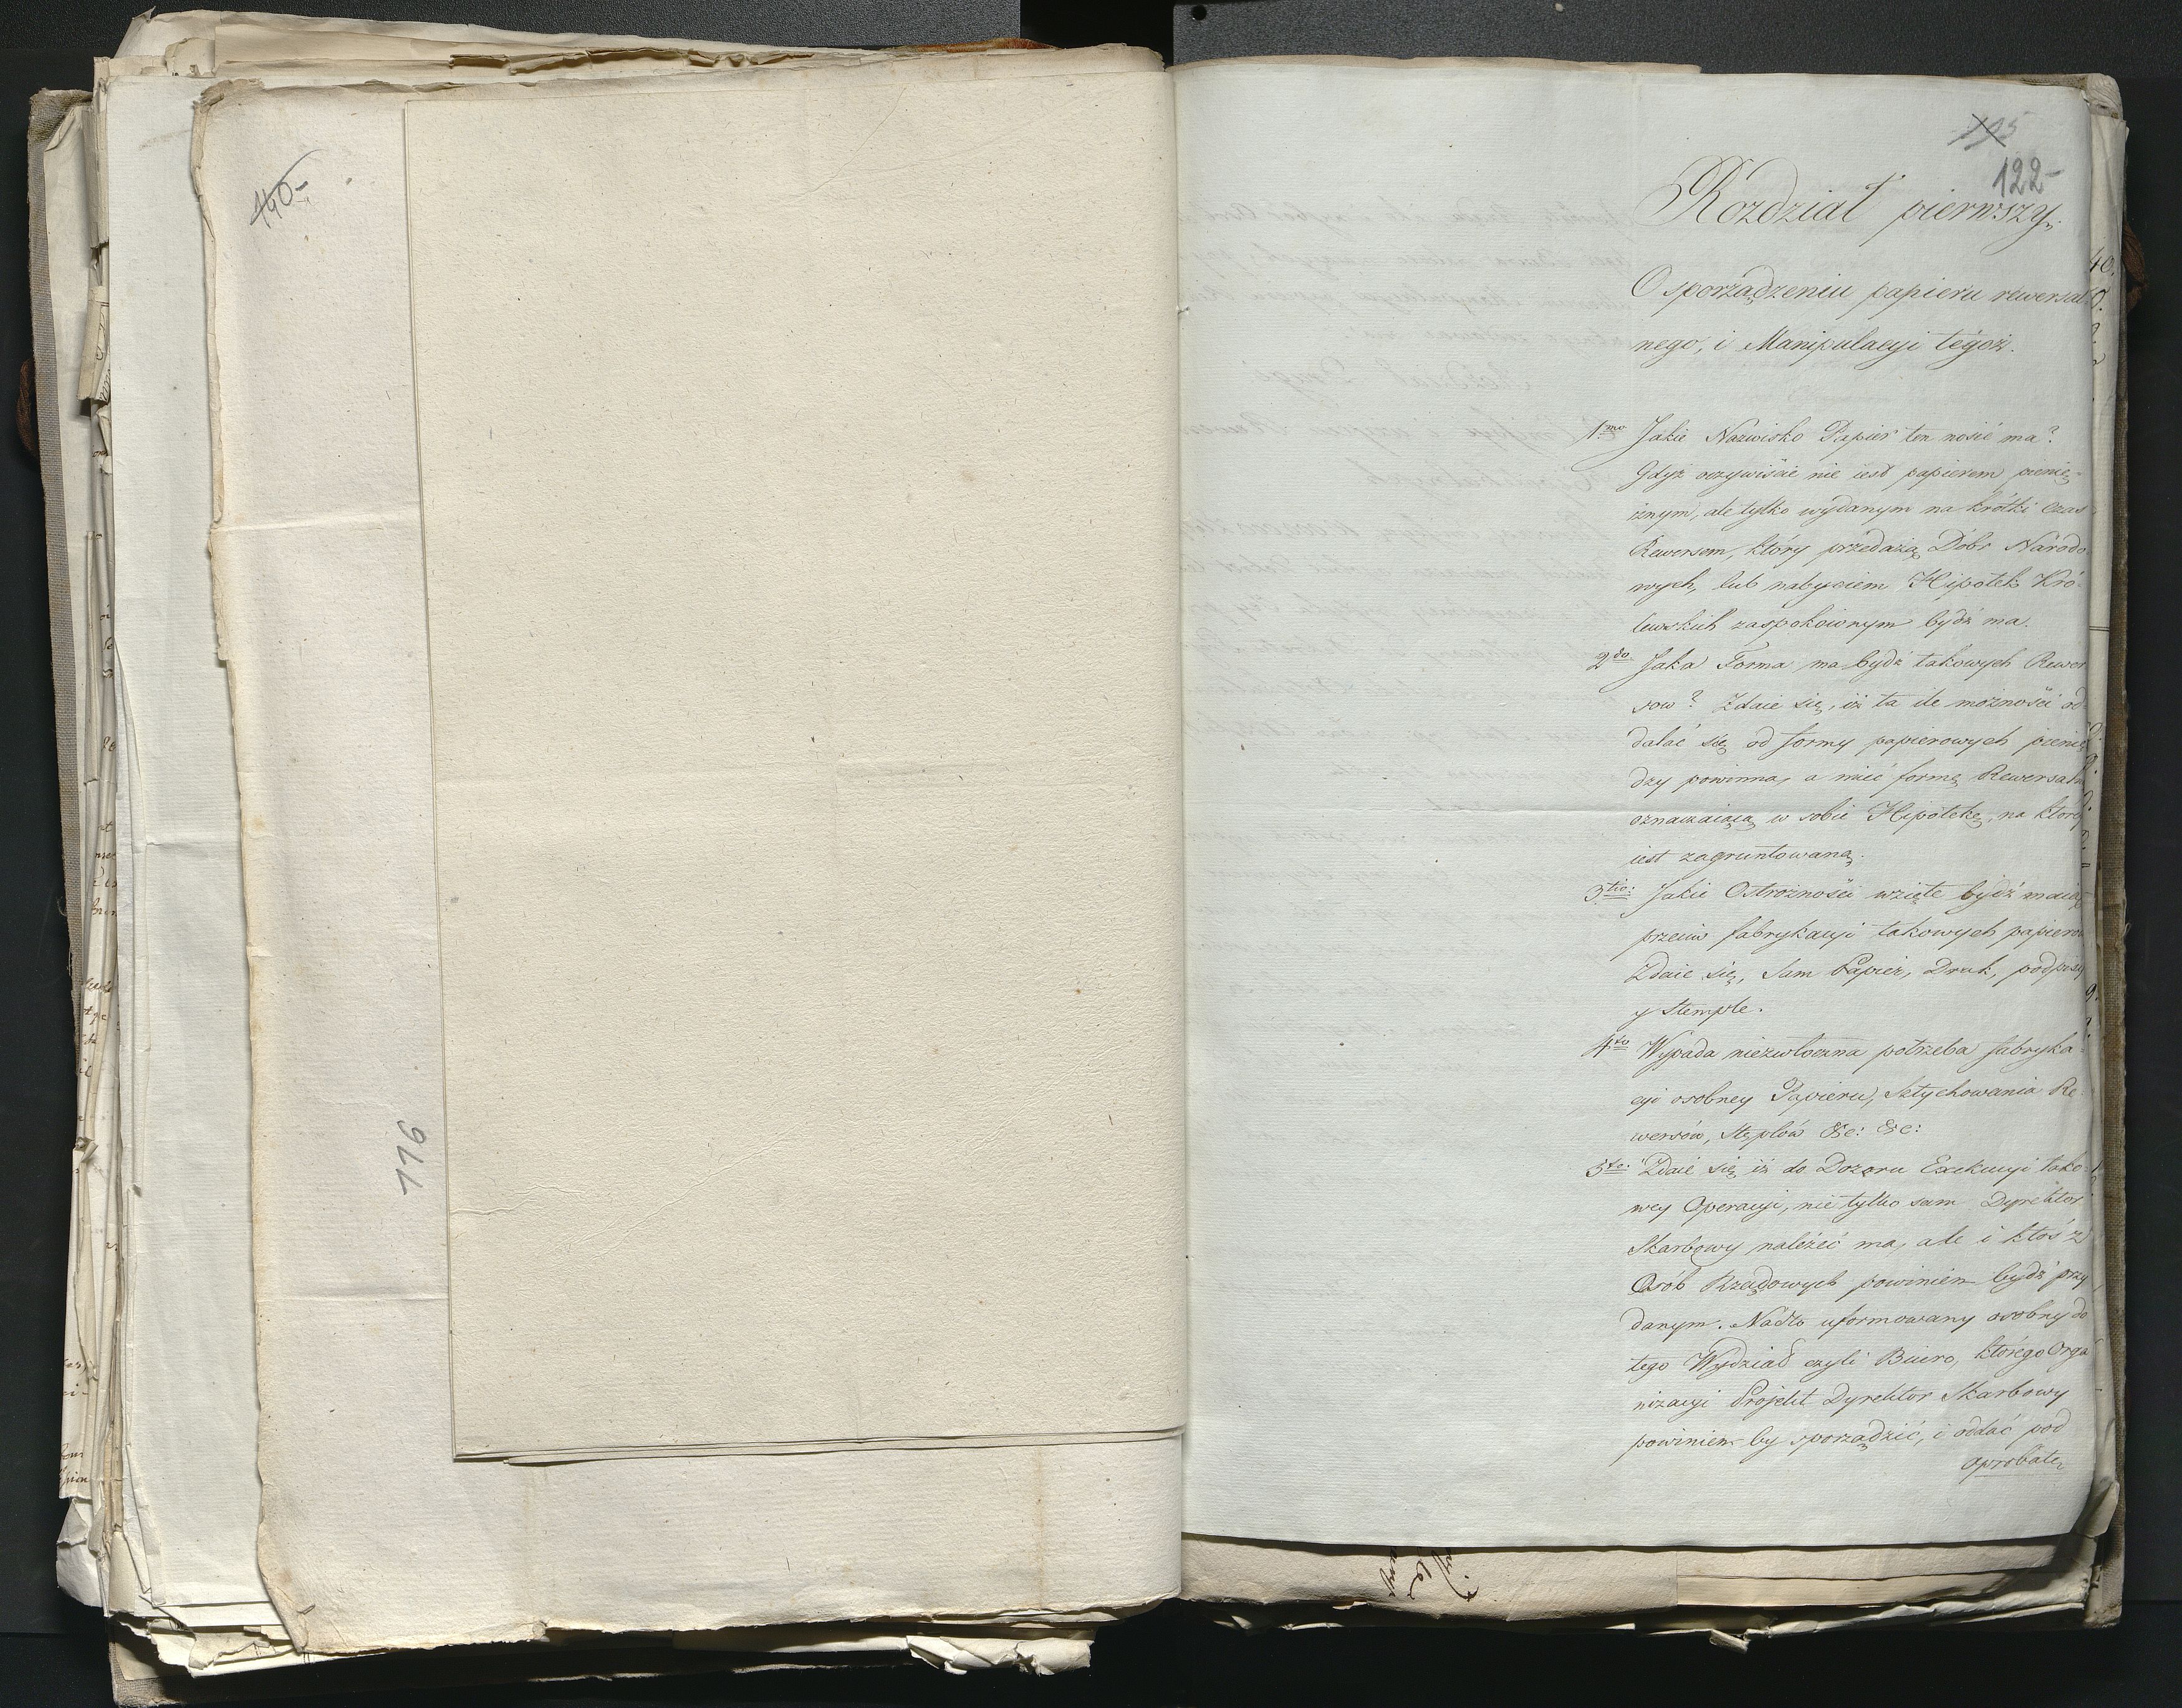 140-
116
195
122-
Rozdział pierwszy.
O sporządzeniu papieru rewersal
nego, i Manipulacyi tegoż.
1mo Jakie Nazwisko Papier ten nosić ma?
Gdyż oczywiście nie iest papierem pienię-
żnym, ale tylko wydanym na krótki czas
Rewersem, który przedażą Dóbr Narodo
wych, lub nabyciem Hipotek Kró-
lewskich zaspokoionym bydź ma.
2do Jaka Forma ma bydź takowych Rewer
sow? Zdaie się, iż ta ile możności od
dalać się od formy papierowych pienię
dzy powinna, a mieć formę Rewersalną
oznaczaiącą w sobie Hipotekę, na którey
iest zagruntowaną.
3tio: Jakie Ostrożności wzięte bydź maią
przeciw fabrykacyi takowych papierow
Zdaie się, Sam Papier, Druk, podpisy
y Stemple.
4to Wypada niezwłoczna potrzeba fabryka-
cyi osobney Papieru, Sztychowania Re-
wersów, Stęplów &c: &c:
5to: Zdaie się iż do Dozoru Exekucyi tako-
wey Operacyi, nie tylko sam Dyrektor
Skarbowy należeć ma, ale i ktoś z
Osób Rządowych powinien bydź przy
danym. Nadto uformowany osobny do
tego Wydział czyli Biuro, którego Orga
nizacyi Projekt Dyrektor Skarbowy
powinien by sporządzić, i oddać pod
aprobatę